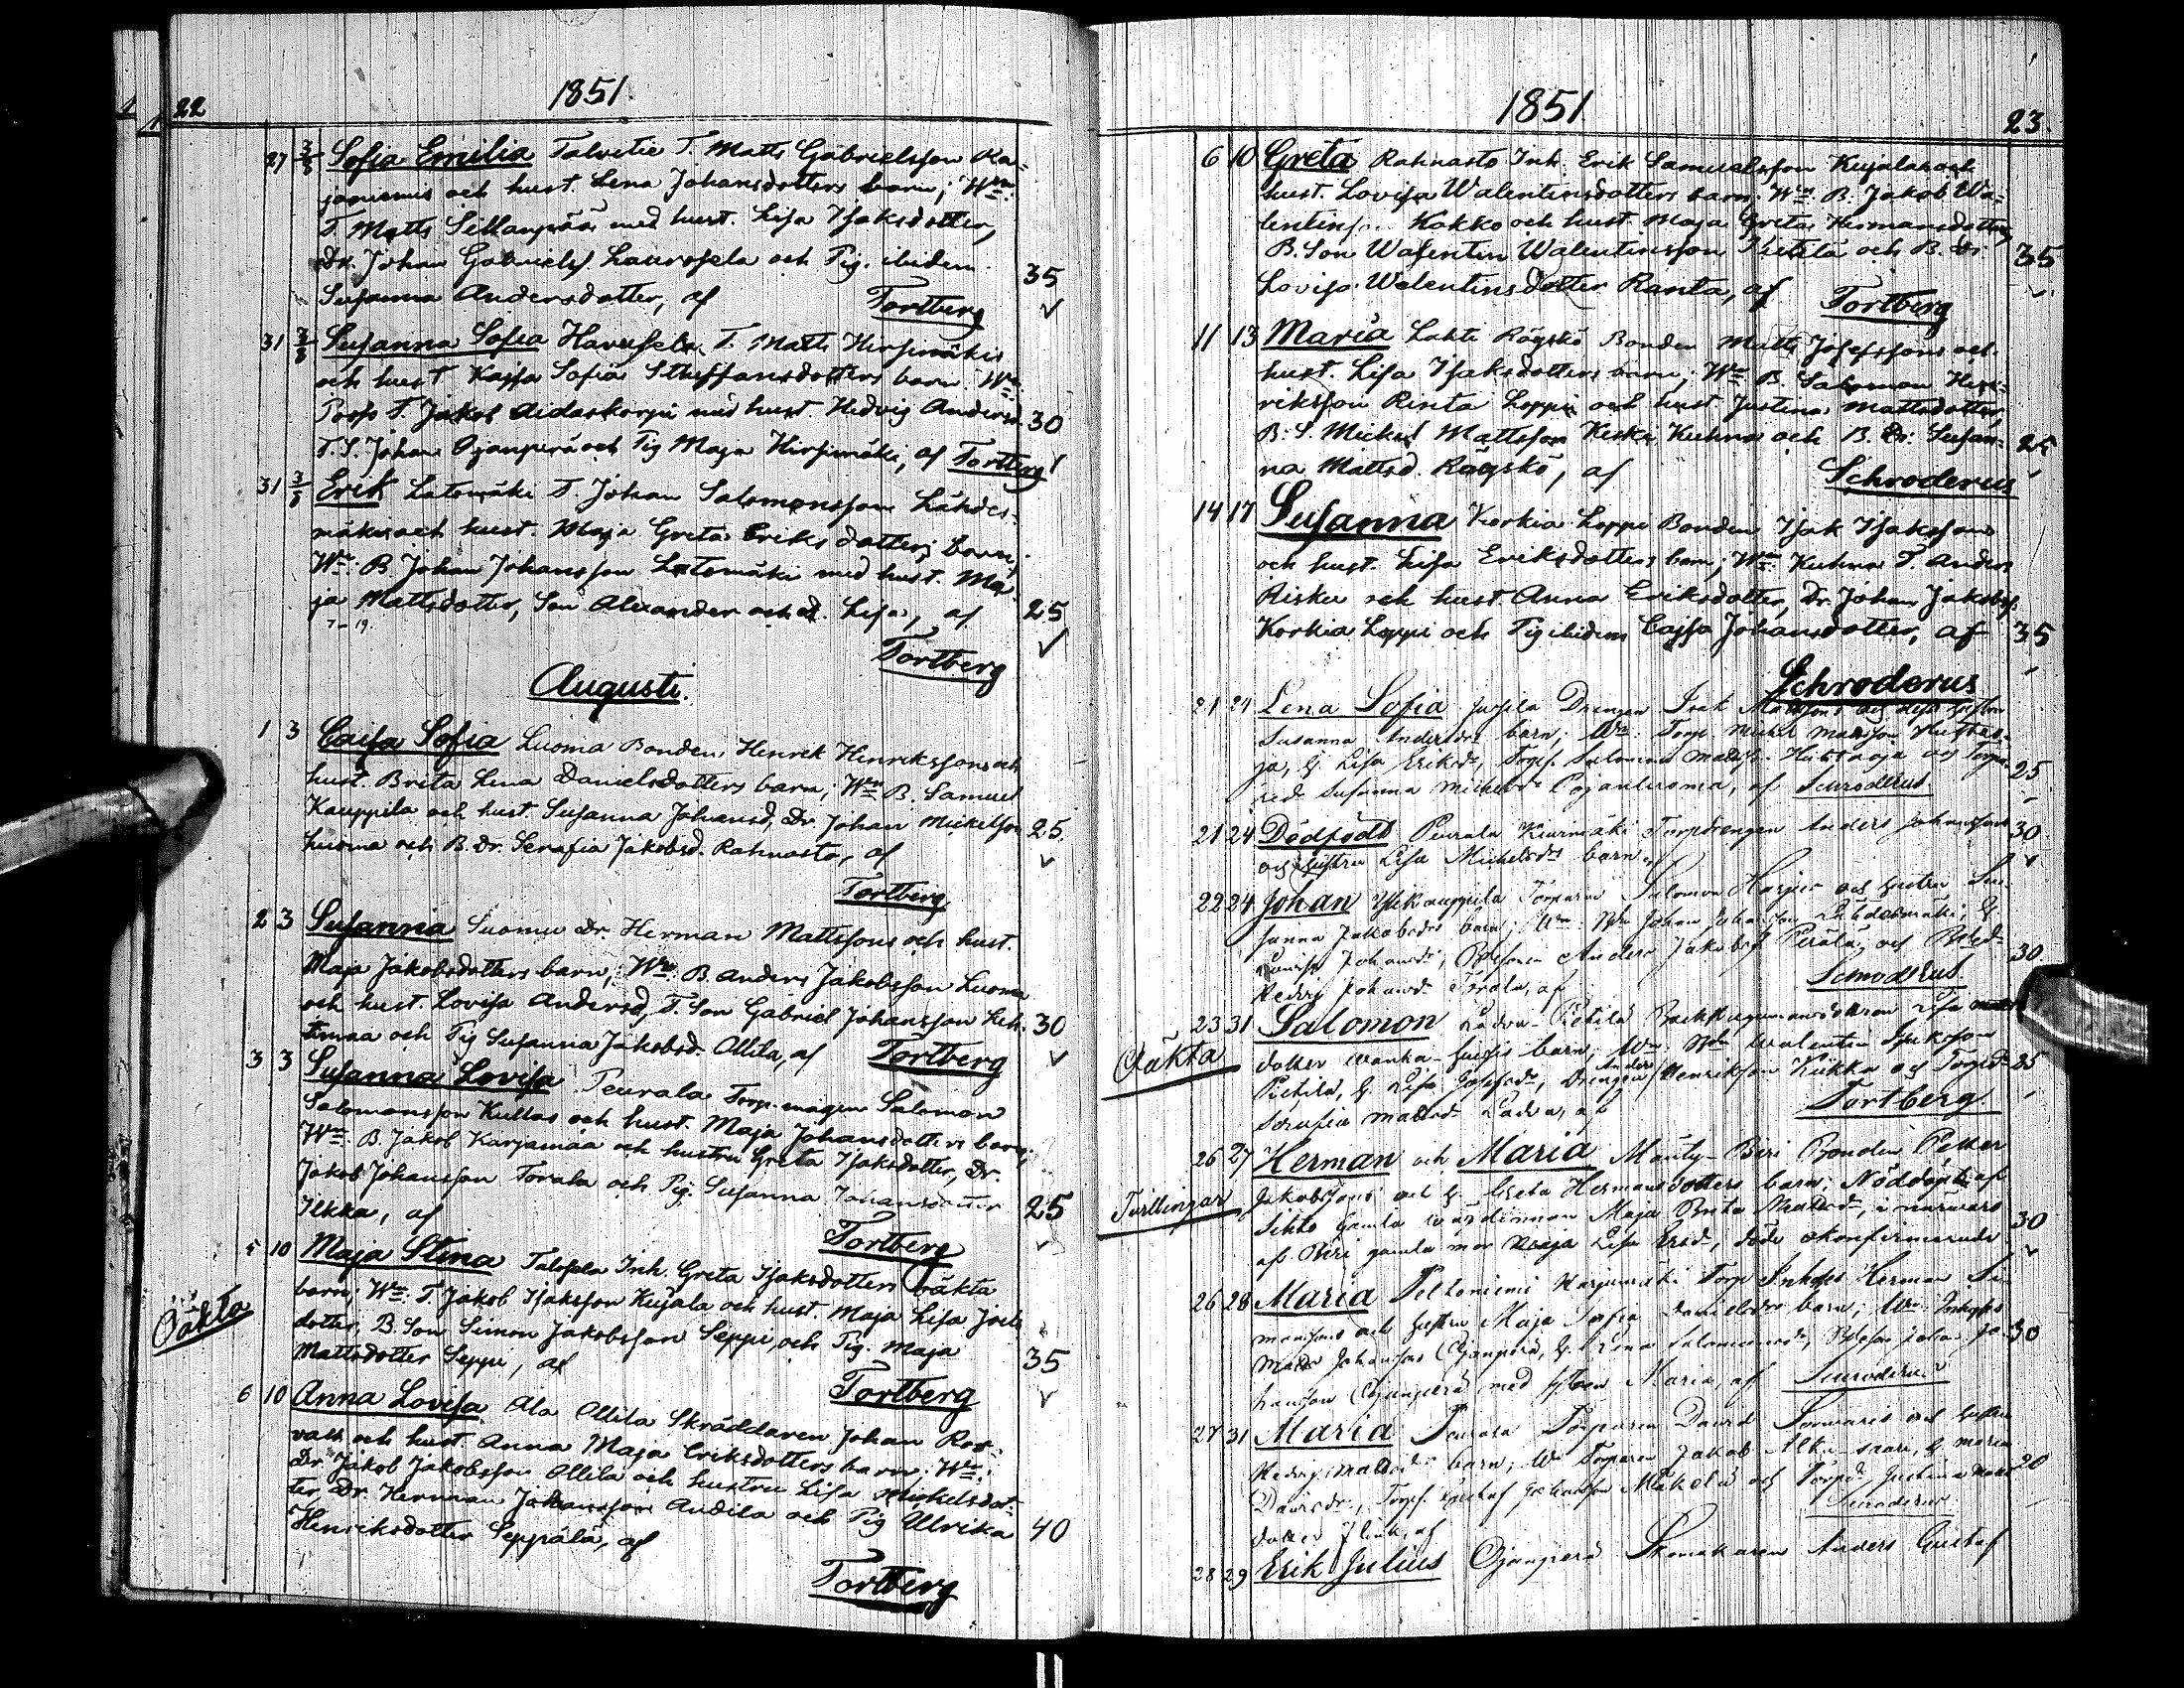 22
1851.
27 3/8 Sofia Emilia Talvitie T. Matts Gabrielsson Ka=
janiemis och hust. Lena Johansdotters barn; Wn:
T. Matts Sillanpää med hust. Lisa Isaksdotter,
Dr. Johan Gabrielss. Laurosela och Pig. ibidem
Susanna Andersdotter, af Tortberg 35
31 3/8 Susanna Sofia Harusela T. Matts Hirsimäkis
och hust. Kajsa Sofia Staffansdotters barn. Wn:
T. Jakob Aidaskorpi med hust. Hedvig Andersd. 30
T.S. Johan Ojanperä och Pig Maja Hirsimäki, af Tortberg
31 3/8 Erik Latomäki T. Johan Salomonsson Lähdes=
mäkis och hust. Maja Greta Eriksdotters barn;
Wn: B. Johan Johansson Latomäki med hust. Ma=
ja Mattsdotter, Son Alexander och d. Lisa, af 25
7-19.
Tortberg
Augusti.
1 3 Caisa Sofia Luoma Bonden Henrik Henrikssons och
hust. Brita Lena Danielsdotters barn; Wn: B. Samuel
Kauppila och hust. Susanna Johansd, Dr. Johan Mickelsson 25
Luoma och B. Dr. Serafia Jakobsd. Rahnasto, af
Tortberg
2 3 Susanna Luoma Dr. Herman Mattssons och hust.
Maja Jakobsdotters barn; Wn: B. Anders Jakobsson Luoma
och hust. Lovisa Andersd, T. Son Gabriel Johansson Leh= 30
timaa och Pig Susanna Jakobsd. Ollila, af Tortberg
3 3 Susanna Lovisa Peurala Torp. Salomon
Salomonsson Kullas och hust. Maja Johansdotters barn;
Wn: B. Jakob Karjamaa och hustru Greta Isaksdotter, Dr.
Jakob Johansson Torala och Pig. Susanna Johansdotter 25
Ilkka, af
Tortberg
5 10 Maja Stina Talsela Inh. Greta Isaksdotters oäkta
Oäkta
barn; Wn: T. Jakob Isaksson Kujala och hust. Maja Lisa Joels
dotter, B. Son Simon Jakobsson Seppi, och Pig. Maja
Mattsdotter Seppi, af 35
Tortberg
6 10 Anna Lovisa Ala Ollila Skräddaren Johan Ros=
valls och hust. Anna Maja Eriksdotters barn; Wn:
Dr. Jakob Jakobsson Ollila och hustru Lisa Mickelsdot=
ter, Dr. Herman Johansson Andila och Pig Ulrika 40
Henriksdotter Seppälä, af
Tortberg
1851
23.
6 10 Greta Rahnasto Inh. Erik Samuelsson Kujalas och
hust. Lovisa Walentinsdotters barn. Wn: B. Jakob Wa=
lentinss. Kakko och hust. Maja Greta Hermansdotter,
B. Son Walentin Walentinsson Pietilä och B. Dr. 35
Lovisa Walentinsdotter Ranta, af Tortberg
11 13 Maria Lahti Rägskö Bonden Matts Josefssons och
hust. Lisa Isaksdotters barn; Wn: B. Salomon Hen=
riksson Rinta Loppi och hust. Justina Mattsdotter,
B. S. Mickel Mattsson Keski Kuhna och B. Dr. Susan= 25
na Mattsd. Rägskö, af Schroderus
14 17 Susanna Korkia Loppi Bonden Isak Isakssons
och hust. Lisa Eriksdotters barn; Wn: Kuhna T. Anders
Risku och hust. Anna Eriksdotter, Dr. Johan Jakobss.
Korkia Loppi och Pig ibidem Cajsa Johansdotter, af 35
Schroderus
21 24 Lena Sofia Drengen Isak Mattssons och dess hustru
Susanna Andersdrs barn; Wn: Torp. Michel Mattsson
ja, h. Lisa Eriksdr, Torps. Salomon Huhtaoja och Torpa= 25
redr. Susanna Michelsdr Pojanluoma, af Schroderus.
21 24 Dödfödt Peurala Kurmäki Torpdrengen Anders Johanssons 30
och hustru Lisa Michelsdrs barn.
22 24 Johan Ylikauppila Torparen Salomon Harjus och hustru Su=
sanna Jakobsdrs barn; Wn: Johan Lähdesmäki, h.
Lovisa Johansdr, Anders Jakobss. Perälä, och 30
Hedvig Johansdr Torala, af Schroderus.
23 31 Salomon Ladva-Pietilä Lisa
Oäkta
dotter barn; Wn: Walentin Isaksson
Pietilä, h. Lisa Josefsdr, Drengen Anders Henriksson Kukka och Torpdr 25
Serafia Mattsdr Ladva, af
Tortberg.
26 27 Herman och Maria Mänty-Biri Bonden Petter
Tvillingar
Jakobssons och h. Greta Hermansdotters barn; Nöddöpte af
gamla wärdinnan Maja Brita Mattsdr, i närwaro 30
af Biri gamla mor Maja Lisa Ersdr, döde okonfirmerade.
26 28 Maria Peltoniemi Harjumäki Torp Inhyses Herman Si=
monssons och hustru Maja Sofia Danielsdrs barn; Wn: Inhyses
Matts Johansson Ojanperä, h. Lena Salomonsdr, Johan Jo= 30
hansson Ojanperä med Maria, af Schroderus
27 31 Maria Torparen David och hustru
Hedvig Mattsdrs barn; Wn Torparen Jakob Alkusaari, h. Maria
Davidsdr, Torps. Gustaf Johansson Mäkelä och Torpdr Justina Matts 20
dotter Flink, af Schroderus
28 29 Erik Julius Ojanperä Skomakaren Anders Gustaf